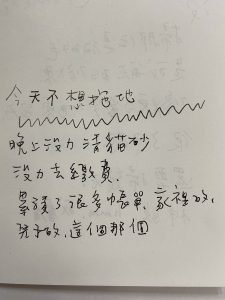 今天不想拖地
晚上沒力清貓砂
沒力去繳費.
累積了很多帳單,家裡的,
兒子的,這個那個